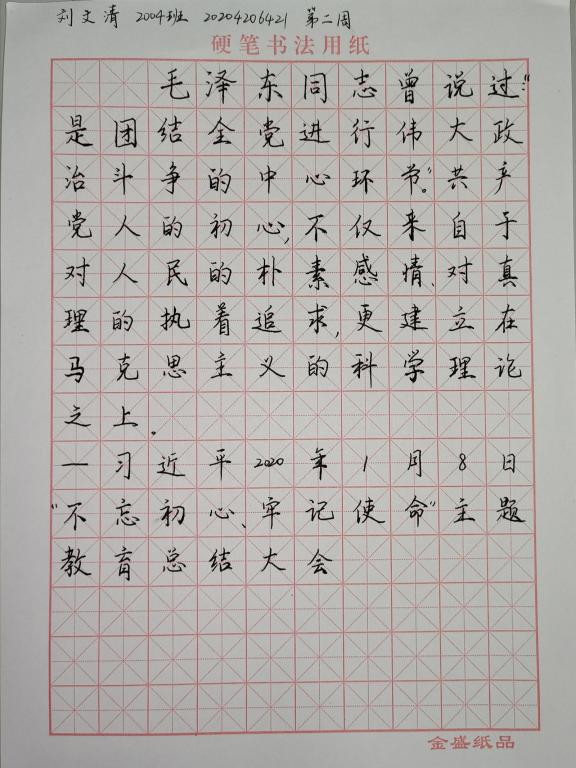 刘文清 2004班 20204206421 第二周
硬笔书法用纸
毛泽东同志曾说过:“
是团结全党进行伟大政
治斗争的中心环节”。共产
党人的初心,不仅来自于
对人民的朴素感情、对真
理的执着追求,更建立在
马克思主义的科学理论
之上。
—习近平2020年1月8日
“不忘初心、牢记使命”主题
教育总结大会
金盛纸品